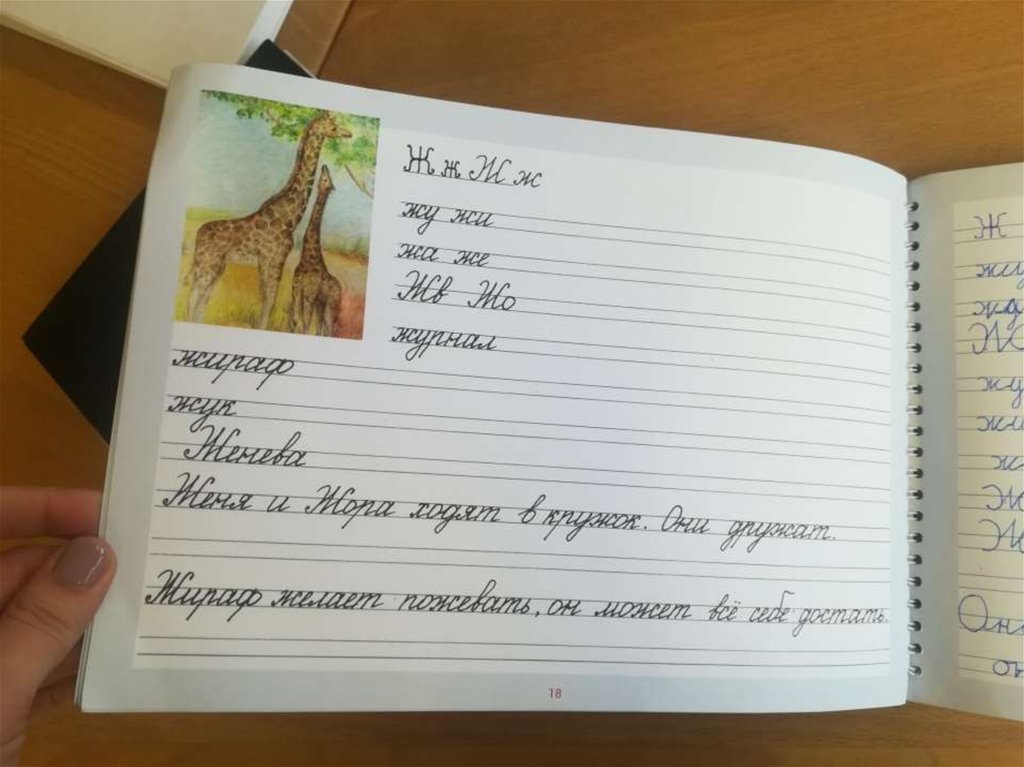 Ж ж Ж ж
жу жи
жа же
Жв Жо
журнал
жираф
жук
Женева
Женя и Жора ходят в кружок. Они дружат.
Жираф желает пожевать, он может всё себе достать.
18
Ж
жу
Ж
Они